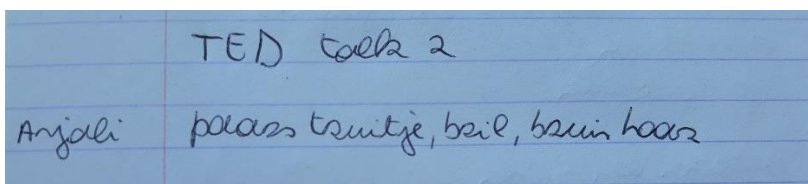 TED talk 2
Anjali paars truitje, bril, bruin haar